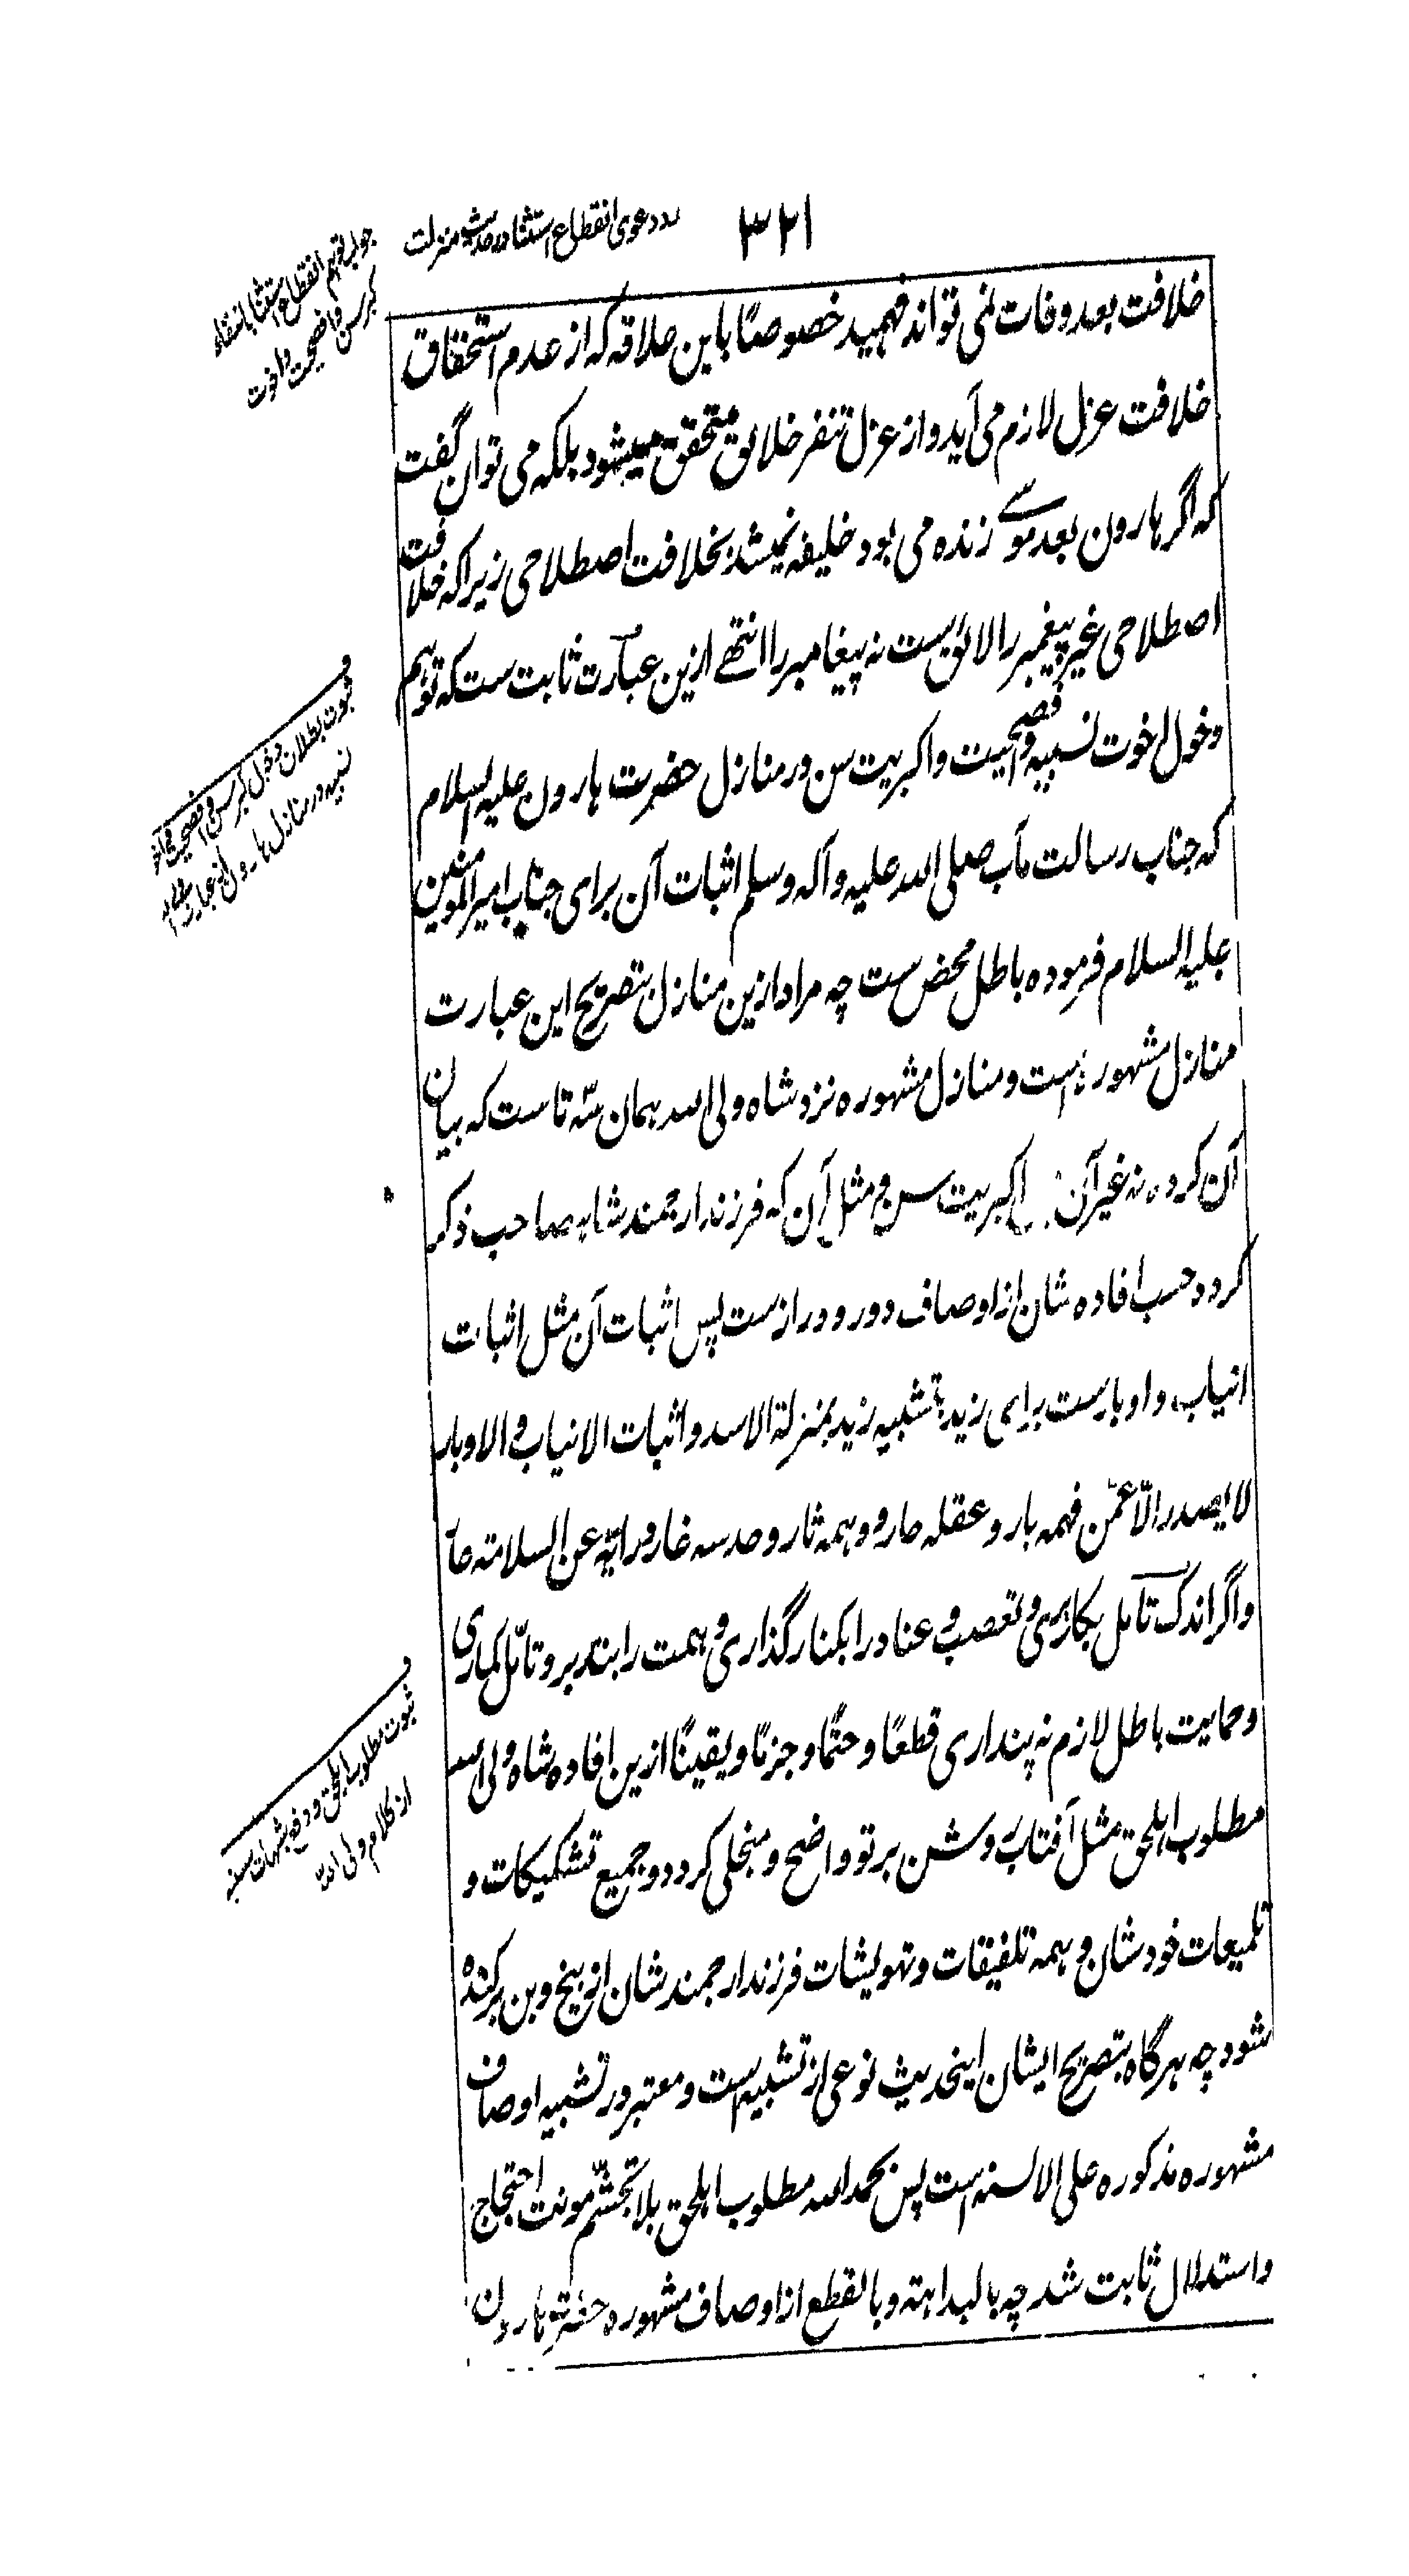 ۳۲۱
رد دعوی انقطاع استثنا در حدیث منزلت
جواب توهم انقطاع استثنا بانتفاء
کبر سن و افصحیت و اخوت
خلافت بعد وفات نمی تواند فهمید خصوصًا باین علاقه که از عدم استحقاق
خلافت عزل لازم می آید و از عزل تنفر خلائق متحقق میشود بلکه می توان گفت
که اگر هارون بعد موسے زنده می بود خلیفه نمیشد بخلافت اصطلاحی زیراکه خلافت
اصطلاحی غیر پیغمبر را لائق ست نه پیغامبر را انتهے ازین عبارت ثابت ست که توهم
دخول اخوت نسبیه و افصحیت و اکبریت سن در منازل حضرت هارون علیه السلام
که جناب رسالت مآب صلی الله علیه و آله و سلم اثبات آن برای جناب امیر المومنین
علیه السلام فرموده باطل محض ست چه مراد ازین منازل بتصریح این عبارت
منازل مشهوره است و منازل مشهوره نزد شاه ولی الله همان سه تا ست که بیان
آن کرده نه غیر آن اکبریت سن و مثل آن که فرزند ارجمند شاه صاحب ذکر
کرد و حسب افاده شان از اوصاف دور و دراز ست پس اثبات آن مثل اثبات
انیاب و اوبار ست برای زید بتشبیه زید بمنزلة الاسد و اثبات الانیاب و الاوبار
لا یصدر الّا عمّن فهمه بار و عقله حار و وهمه ثار و حدسه غار و رایّه عن السلامته حاد
و اگر اندک تامل بکار بری و تعصب و عناد را بکنار گذاری و همت را بتدبر و تامّل گماری
و حمایت باطل لازم نه پنداری قطعًا و حتمًا و جزمًا و یقینًا ازین افاده شاه ولی الله
مطلوب اهلحق مثل آفتاب روشن بر تو واضح و منجلی گردد و جمیع تشکیکات و
تلمیعات خودشان و همه تلفیقات و تهویشات فرزند ارجمند شان از بیخ و بن برکنده
شود چه هرگاه بتصریح ایشان اینحدیث نوعی از تشبیه است و معتبر در تشبیه اوصاف
مشهوره مذکوره علی الالسنه است پس بحمد الله مطلوب اهلحق بلا تجشّم مونت احتجاج
و استدلال ثابت شد چه بالبداهته و بالقطع از اوصاف مشهوره حضرت هارون
ثبوت بطلان دخول کبر سن و افصحیت و اخوت
نسبیه در منازل هارون از عبارت
ثبوت مطلوب اهلحق و دفع شبهات سنیه
از کلام ولی الله